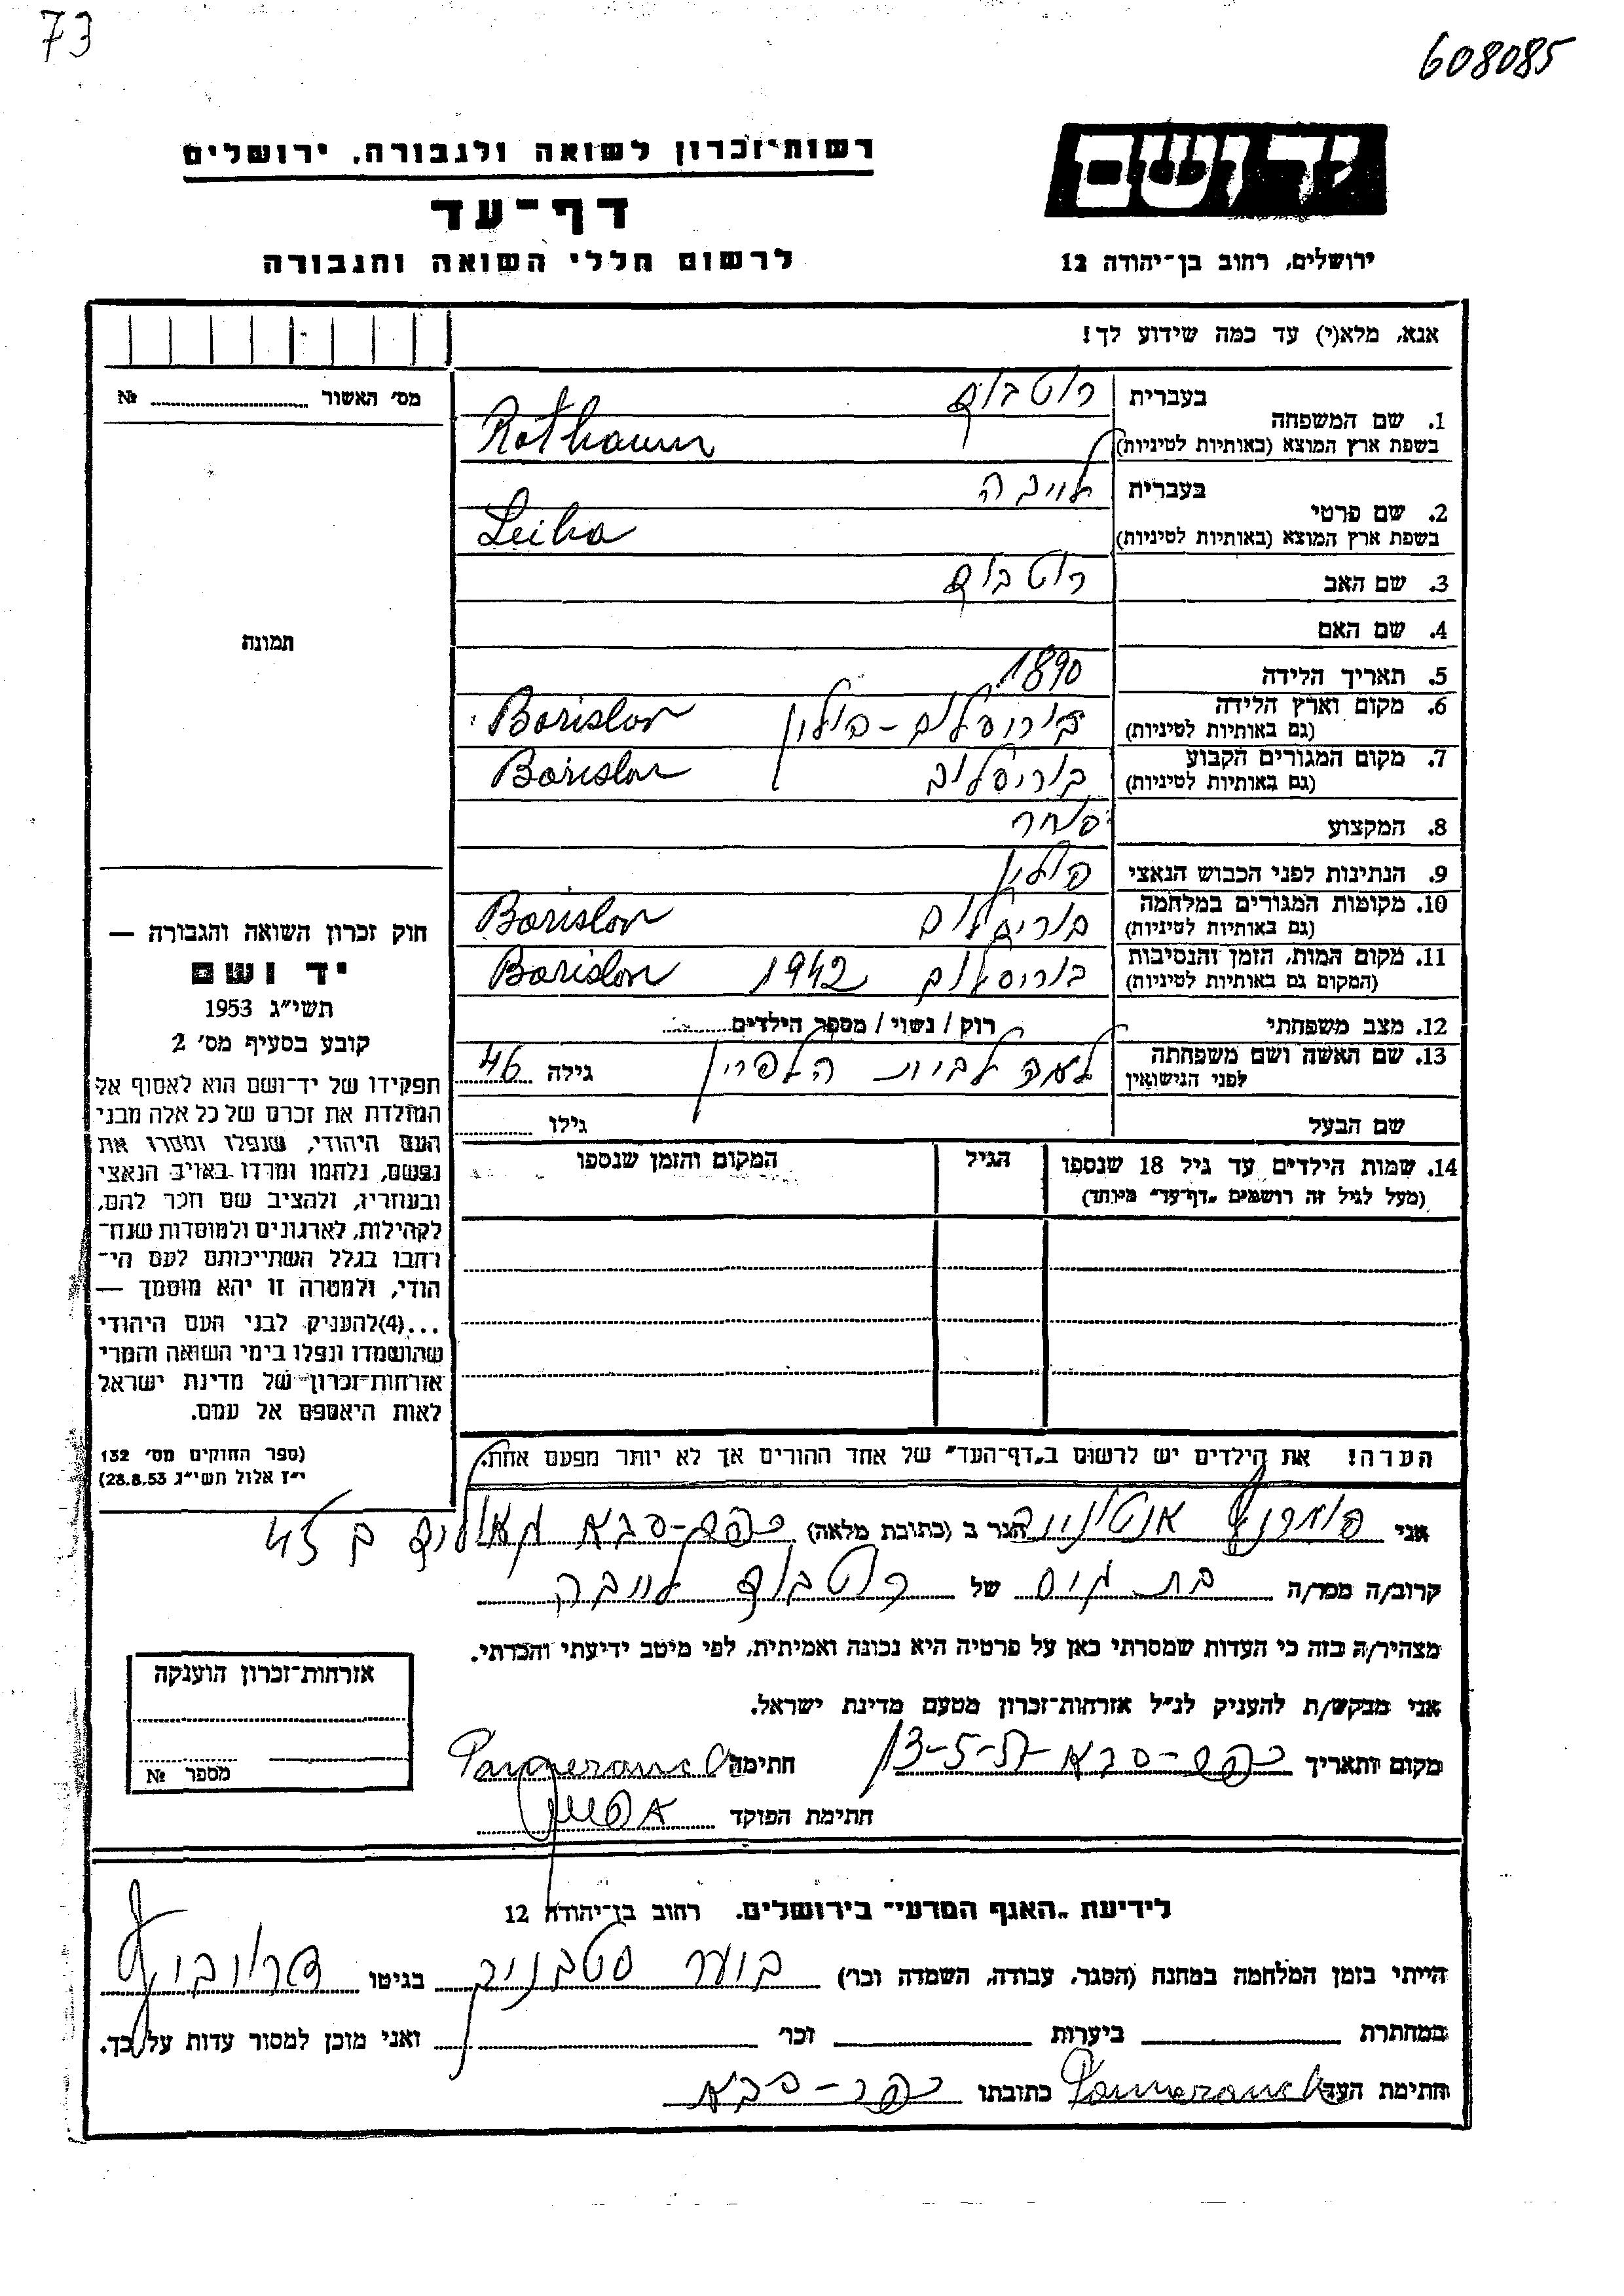 73
608085
יד ושם
רשות־זכרון לשואה ולגבורה, ירושלים
דף־עד
לרשום חללי השואה והגבורה
ירושלים, רחוב בן־יהודה 12
אנא, מלא(י) עד כמה שידוע לך!
מס׳ האשור ........ №
תמונה
1. שם המשפחה
בעברית רוטבוים
בשפת ארץ המוצא (באותיות לטיניות) Rotbaum
2. שם פרטי
בעברית לייבה
בשפת ארץ המוצא (באותיות לטיניות) Leiba
3. שם האב רוטבוים
4. שם האם
5. תאריך הלידה 1890
6. מקום וארץ הלידה בוריסלוב - פולין Borislov
(גם באותיות לטיניות)
7. מקום המגורים הקבוע בוריסלוב Borislov
(גם באותיות לטיניות)
8. המקצוע סוחר
9. הנתינות לפני הכבוש הנאצי פולין
10. מקומות המגורים במלחמה בוריסלוב Borislov
(גם באותיות לטיניות)
11. מקום המות, הזמן והנסיבות בוריסלוב 1942 Borislov
(המקום גם באותיות לטיניות)
12. מצב משפחתי רוק / נשוי / מספר הילדים ........
13. שם האשה ושם משפחתה לבית הלפרין גילה 46
לפני הנישואין
שם הבעל גילו ........
14. שמות הילדים עד גיל 18 שנספו הגיל המקום והזמן שנספו
(מעל לגיל זה רושמים „דף־עד״ מיוחד)
הערה! את הילדים יש לרשום ב„דף־העד״ של אחד ההורים אך לא יותר מפעם אחת.
חוק זכרון השואה והגבורה —
יד ושם
תשי״ג 1953
קובע בסעיף מס׳ 2
תפקידו של יד־ושם הוא לאסוף אל
המולדת את זכרם של כל אלה מבני
העם היהודי, שנפלו ומסרו את
נפשם, נלחמו ומרדו באויב הנאצי
ובעוזריו, ולהציב שם וזכר להם,
לקהילות, לארגונים ולמוסדות שנח־
רבו בגלל השתייכותם לעם הי־
הודי, ולמטרה זו יהא מוסמך —
...(4)להעניק לבני העם היהודי
שהושמדו ונפלו בימי השואה והמרי
אזרחות־זכרון של מדינת ישראל
לאות היאספם אל עמם.
(ספר החוקים מס׳ 132
י״ז אלול תשי״ג 28.8.53)
אני פומרנץ הגר ב (כתובת מלאה) כפר-סבא
קרוב/ה מכר/ה בת גיס של רוטבוים לייבה
מצהיר/ה בזה כי העדות שמסרתי כאן על פרטיה היא נכונה ואמיתית, לפי מיטב ידיעתי והכרתי.
אני מבקש/ת להעניק לנ״ל אזרחות־זכרון מטעם מדינת ישראל.
מקום ותאריך כפר-סבא 13-5-57 חתימה Pomeranch
חתימת הפוקד
אזרחות־זכרון הוענקה
מספר №
לידיעת „האגף המדעי״ בירושלים, רחוב בן־יהודה 12
הייתי בזמן המלחמה במחנה (הסגר, עבודה, השמדה וכו׳) בגיטו
במחתרת ביערות וכו׳ ואני מוכן למסור עדות על כך.
חתימת העד Pomeranch כתובתו כפר-סבא